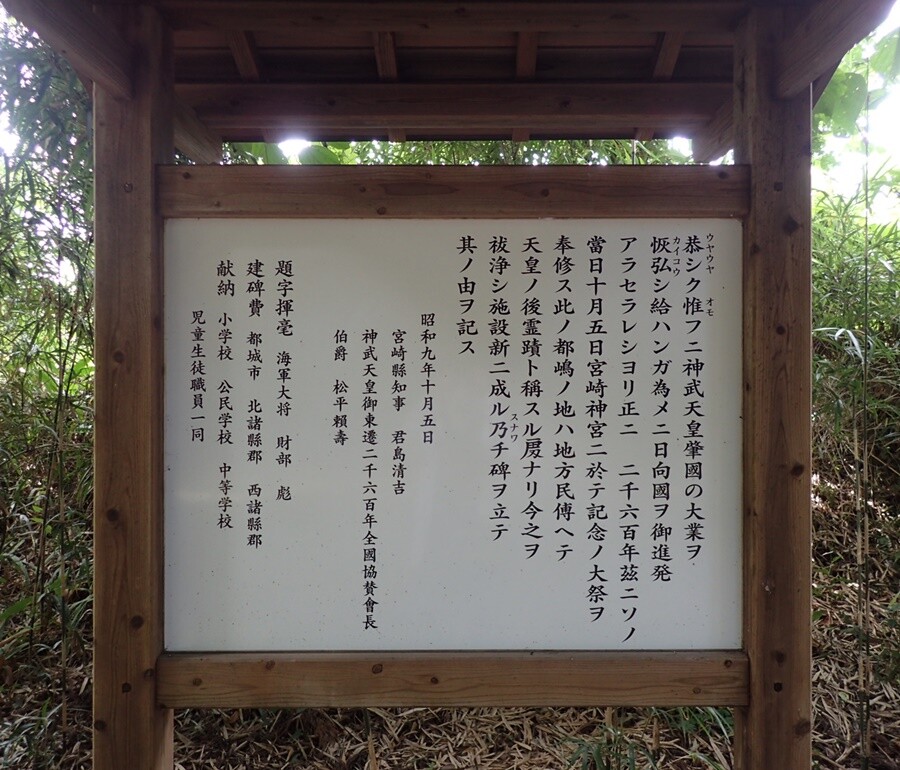 恭シク惟フニ神武天皇肇國の大業ヲ
恢弘シ給ハンガ為メニ日向國ヲ御進発
アラセラレシヨリ正ニ 二千六百年茲ニソノ
當日十月五日宮崎神宮ニ於テ記念ノ大祭ヲ
奉修ス此ノ都嶋ノ地ハ地方民傳ヘテ
天皇ノ後霊蹟ト稱スル処ナリ今之ヲ
祓浄シ施設新ニ成ル乃チ碑ヲ立テ
其ノ由ヲ記ス
昭和九年十月五日
宮崎縣知事 君島清吉
神武天皇御東遷二千六百年全國協賛會長
伯爵 松平頼壽
題字揮毫 海軍大将 財部 彪
建碑費 都城市 北諸縣郡 西諸縣郡
献納 小学校 公民学校 中等学校
児童生徒職員一同
ウヤウヤ
オモ
カイコウ
スナワ